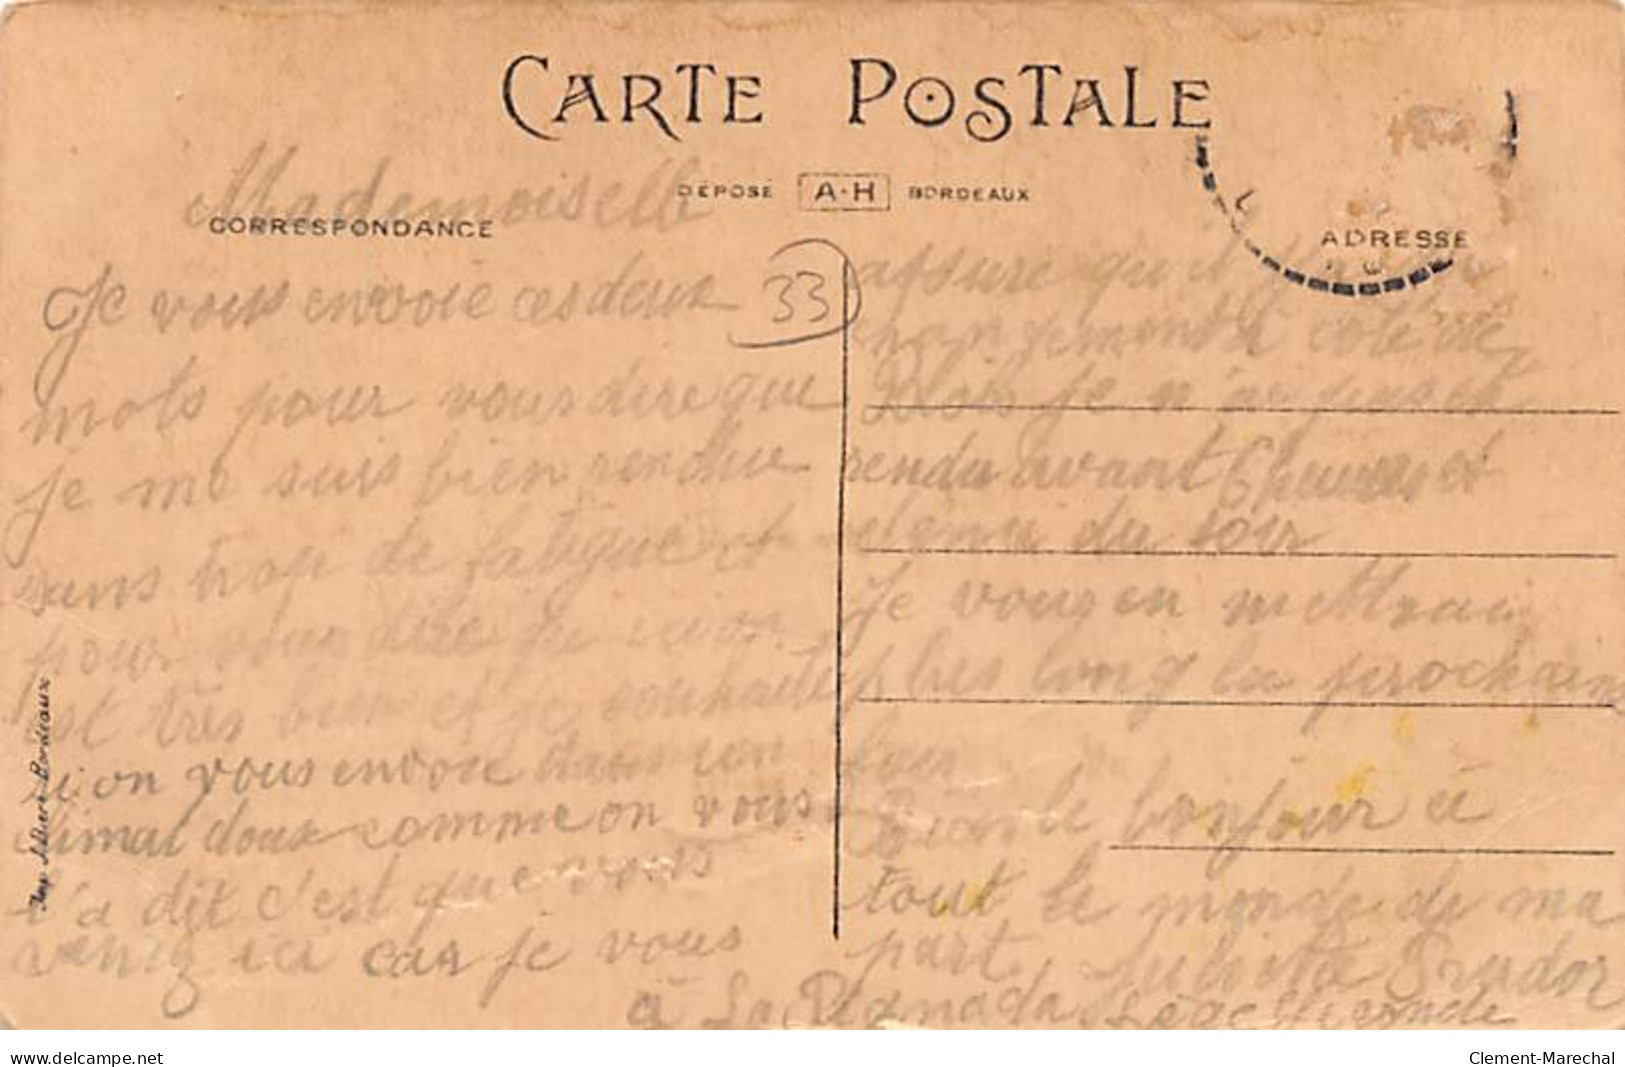 CARTE POSTALE
DÉPOSÉ A·H BORDEAUX
CORRESPONDANCE
ADRESSE
33
Mademoiselle
Je vous envoie ces deux
mots pour vous dire que
je me suis bien rendue
sans trop de fatigue et
pour vous dire ici
est très bien et je souhaite
si on vous envoie dans un
climat doux comme on vous
l'a dit c'est que vous
veniez ici car je vous
assure qu'il
changement à côté de
Blois je n'ai pas et
rendu avant 6 heures et
demi du soir
Je vous en mettrai
plus long la prochaine
fois
bonjour à
tout le monde de ma
part.
à La
Imp. Bordeaux
www.delcampe.net
Clement-Marechal